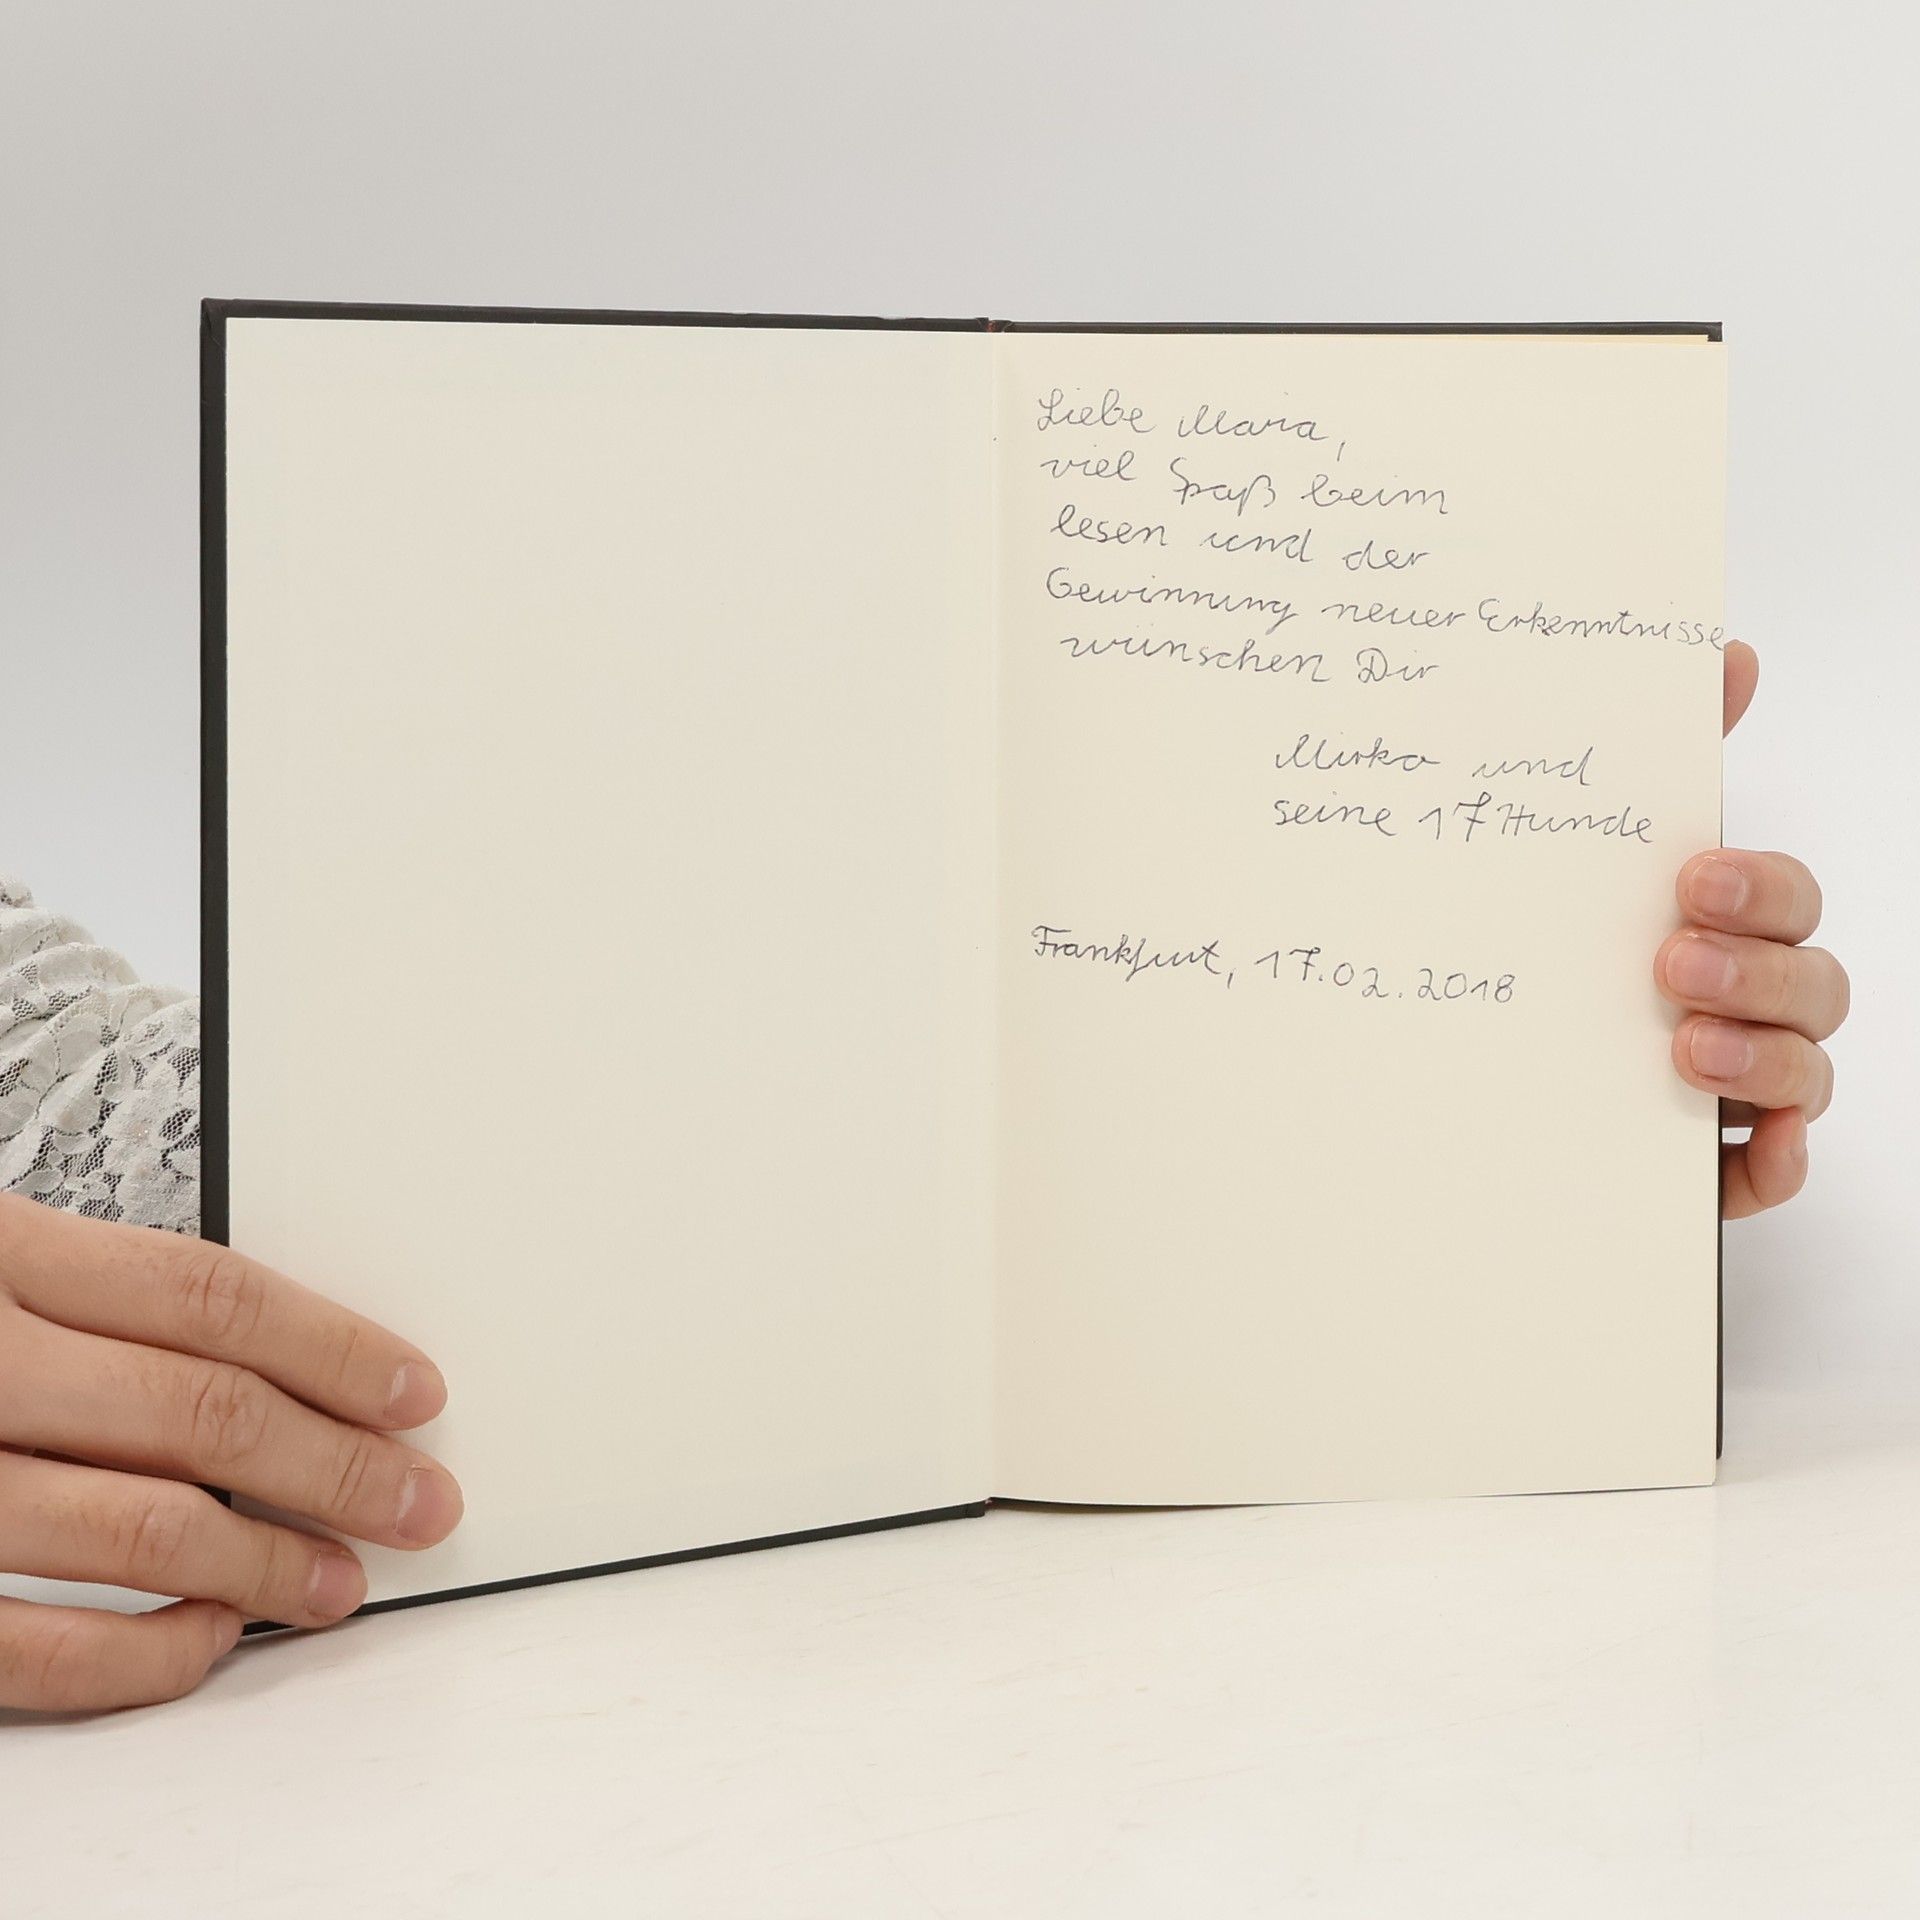 Liebe Maria,
viel Spaß beim
lesen und der
Gewinnung neuer Erkenntnisse
wünschen Dir
Mirko und
seine 17 Hunde
Frankfurt, 17.02.2018